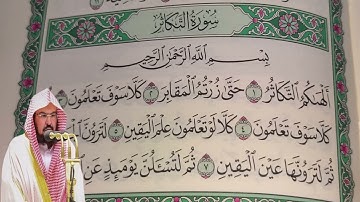 سُورَةُ التَّكَاثُرِ
بِسْمِ اللَّهِ الرَّحْمَٰنِ الرَّحِيمِ
أَلْهَاكُمُ التَّكَاثُرُ ١ حَتَّىٰ زُرْتُمُ الْمَقَابِرَ ٢ كَلَّا سَوْفَ تَعْلَمُونَ
كَلَّا سَوْفَ تَعْلَمُونَ ٤ كَلَّا لَوْ تَعْلَمُونَ عِلْمَ الْيَقِينِ ٥ لَتَرَوُنَّ
ثُمَّ لَتَرَوُنَّهَا عَيْنَ الْيَقِينِ ٧ ثُمَّ لَتُسْأَلُنَّ يَوْمَئِذٍ عَنِ